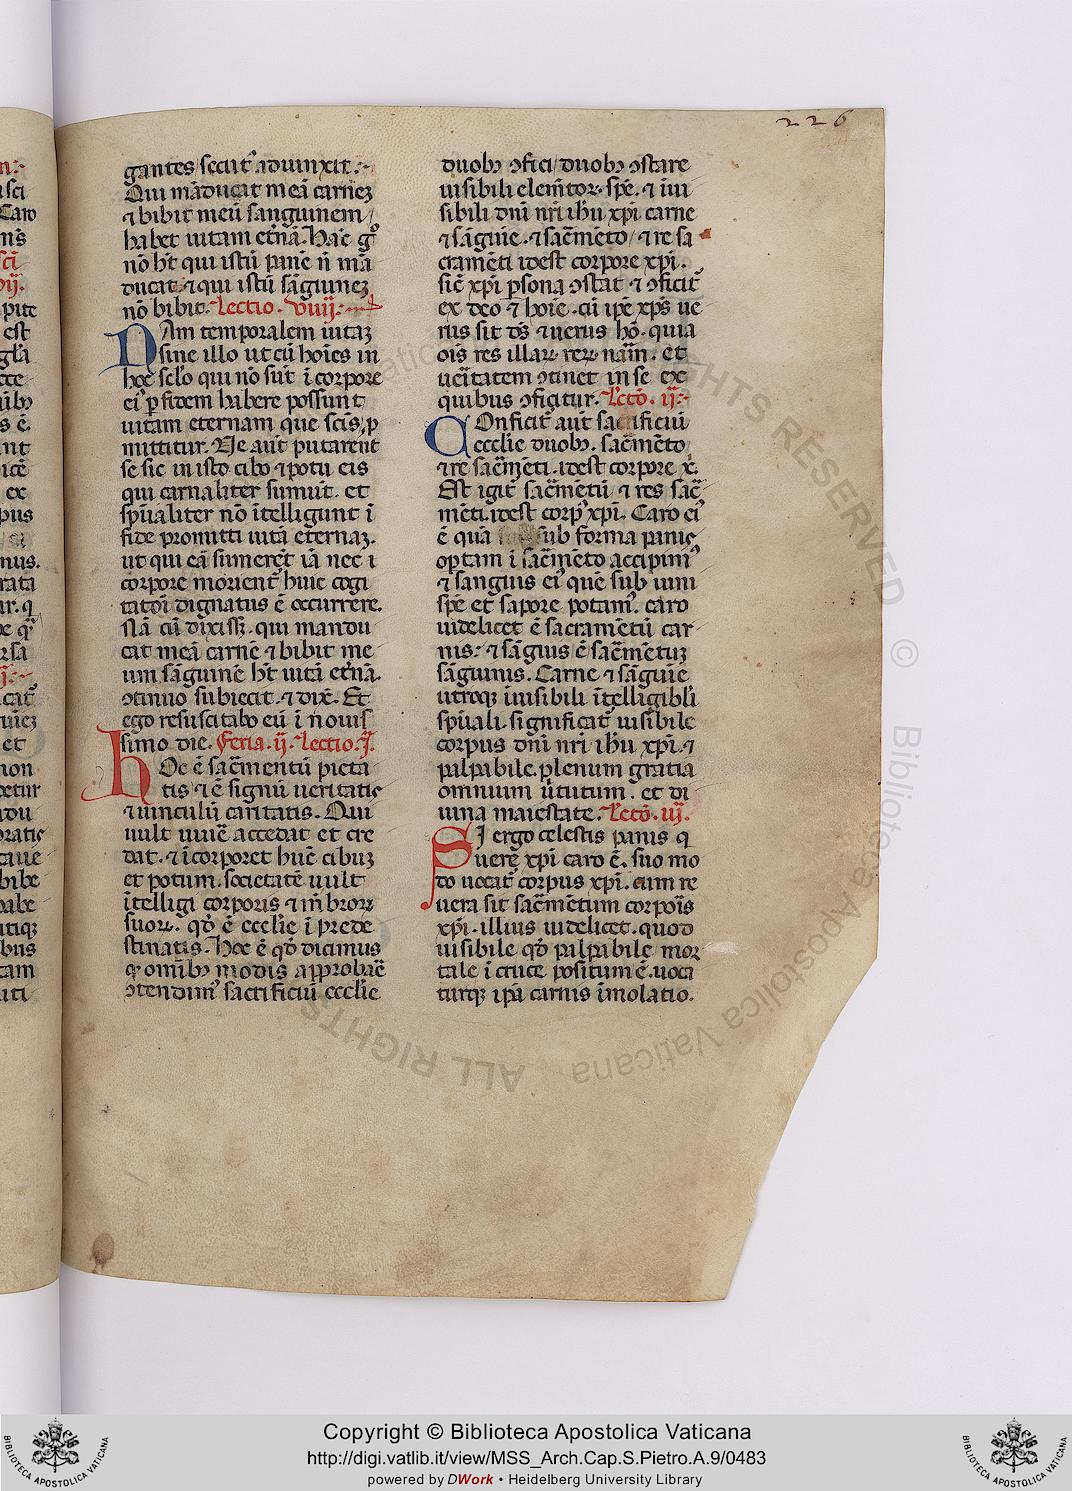 226
gantes secut᷒ aduinxit.
Qui māducat meā carnez
⁊ bibit meū sanguinem
habet uitam et̄nā. Hāc g̊
nō ht̄ qui istū panē n̄ mā
ducat. ⁊ qui istū sāguinez
nō bibit. Lectio. viiij.
Nam temporalem uitaz
sine illo ut cū hoīes in
hoc sclo qui nō sūt ī corpore
ei᷒ p fidem habere possunt
uitam eternam que scīs p
mittitur. Ne aut̄ putarent
se sic in isto cibo ⁊ potu eis
qui carnaliter sumūt. et
spūaliter nō ītelligunt ī
fide promitti uitā eternaz.
ut qui eā sumerēt iā nec ī
corpore morient᷒ huic cogi
tatōī dignatus ē occurrere.
Nā cū dixissz. qui mandu
cat meā carnē ⁊ bibit me
um sāguinē ht̄ uitā et̄nā.
ↄtinuo subiecit. ⁊ dix̄. Et
ego resuscitabo eū ī nouis
simo die. Feria. ij. Lectio. j.
Hoc ē sac̄mentū pieta
tis ⁊ ē signū ueritatis
⁊ uinculū caritatis. Qui
uult uiuē accedat et cre
dat. ⁊ īcorporet hūc cibuz
et potum. societatē uult
ītelligi corporis ⁊ m̄broꝝ
suoꝝ. qd̄ ē eccl̄ie ī prede
stinatis. Hoc ē qd̄ dicimus
omībꝫ modis approbāē
ↄtendim᷒ sacrificiū eccl̄ie
duobꝫ ↄfici duobꝫ ↄstare
uisibili elem̄toꝝ. spē. ⁊ īui
sibili dn̄i nr̄i ihū xp̄i carne
⁊ sāguīe. ⁊ sac̄mēto ⁊ re sa
cramēti idest corpore xp̄i.
sic̄ xp̄i p̱sona ↄstat ⁊ ↄficit᷒
ex deo ⁊ hoīe. cū ip̄e xp̄s ue
rus sit ds̄ ⁊ uerus hō. quia
oīs res illaꝝ reꝝ nām. et
ueītatem ↄtinet in se ex
quibus ↄficitur. Lectō. ij.
Conficit᷒ aut̄ sacrificiū
eccl̄ie duobꝫ. sac̄mēto
⁊ re sac̄mēti. idest corpore x̄.
Est igit᷒ sac̄mētū ⁊ res sac̄
mēti. idest corp᷒ xp̄i. Caro ei᷒
ē quā sub forma panis
optam ī sac̄mēto accipim᷒
⁊ sanguis ei᷒ quē sub uini
spē et sapore potam᷒. caro
uidelicet ē sacramētū car
nis: ⁊ sāguis ē sac̄mētuz
sāguinis. Carne ⁊ sāguīe
utroqꝫ īuisibili ītelligibli
spūali. significat᷒ uisibile
corpus dn̄i nr̄i ihū xp̄i. ⁊
palpabile. plenum gratia
omnium ūtutum. et di
uina maiestate. Lectō. iij.
Si ergo celestis panis q
uere xp̄i caro ē. suo mo
do uocat᷒ corpus xp̄i. cum re
uera sit sac̄mētum corpoīs
xp̄i. illius uidelicet. quod
uisibile qd̄ palpabile mor
tale ī cruce positum ē. uoca
turqꝫ ip̄a carnis īmolatio.
Copyright © Biblioteca Apostolica Vaticana
http://digi.vatlib.it/view/MSS_Arch.Cap.S.Pietro.A.9/0483
powered by DWork • Heidelberg University Library